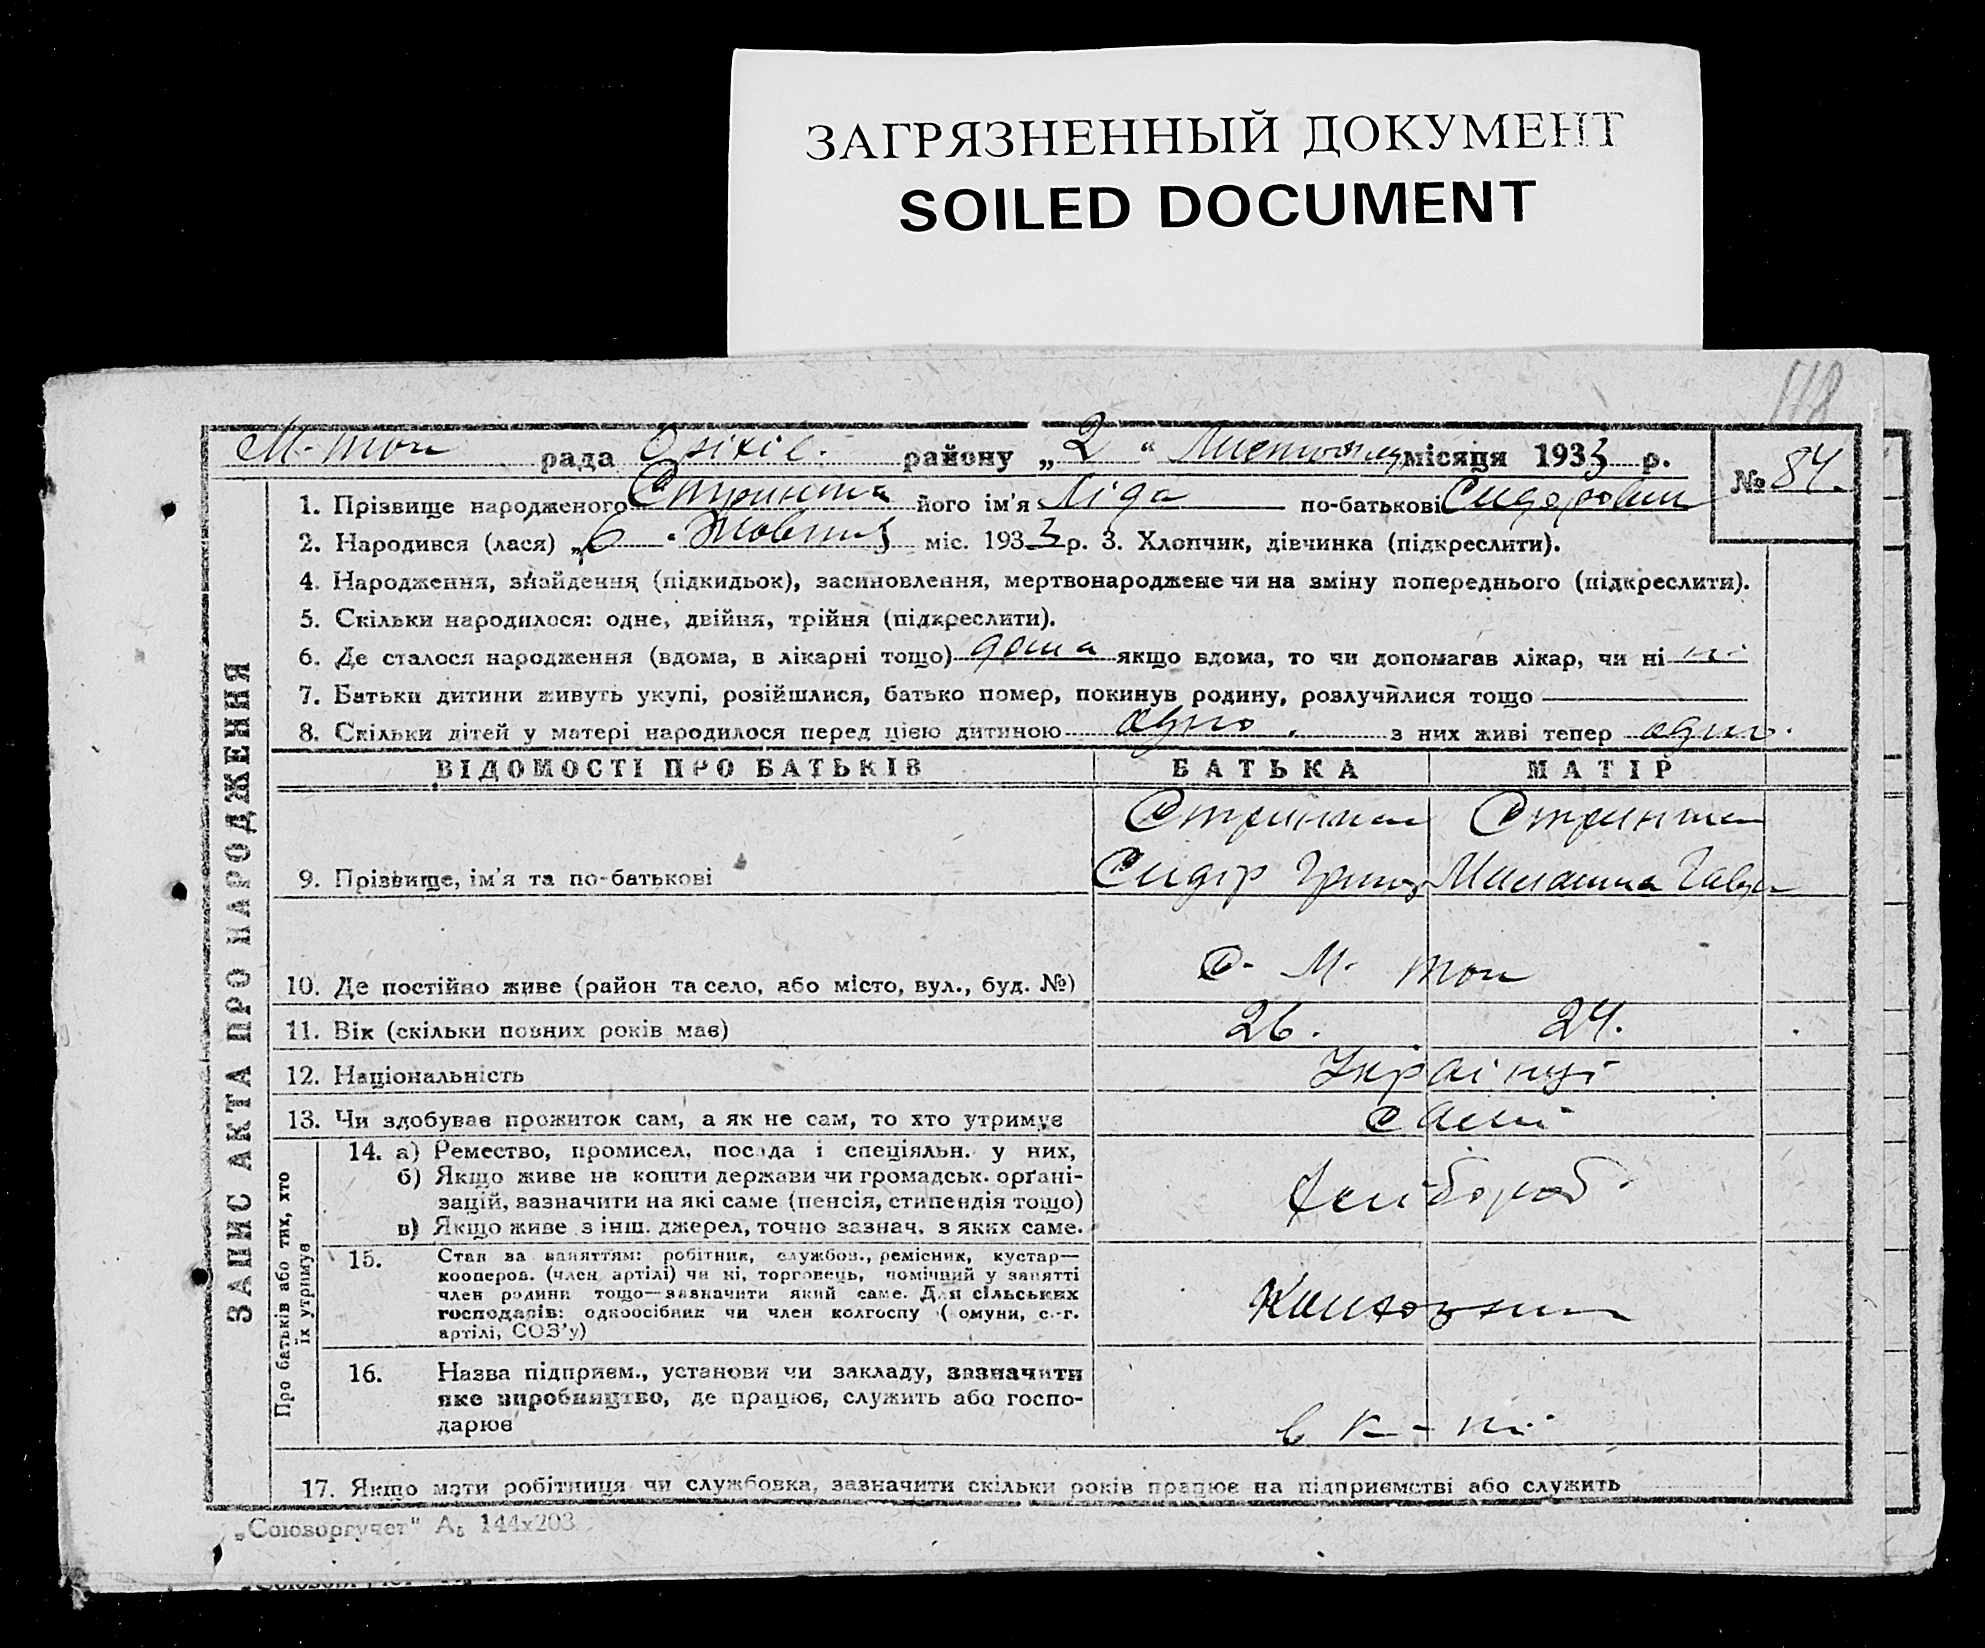 ЗАГРЯЗНЕННЫЙ ДОКУМЕНТ
SOILED DOCUMENT
118
М-Ток рада Оріхів. району „2“ Листопад місяця 1933 р.
№ 84.
1. Прізвище народженого його ім'я Ліда по-батькові Сидоровн
2. Народився (лася) „6 . Жовтня міс. 1933 р. 3. Хлопчик, дівчинка (підкреслити).
4. Народження, знайдення (підкидьок), засиновлення, мертвонароджене чи на зміну попереднього (підкреслити).
5. Скільки народилося: одне, двійня, трійня (підкреслити).
6. Де сталося народження (вдома, в лікарні тощо) дома якщо вдома, то чи допомагав лікар, чи ні ні
7. Батьки дитини живуть укупі, розійшлися, батько помер, покинув родину, розлучилися тощо
8. Скільки дітей у матері народилося перед цією дитиною одно . з них живі тепер одно.
ВІДОМОСТІ ПРО БАТЬКІВ БАТЬКА МАТІР
9. Прізвище, ім'я та по-батькові Сидір Григ
10. Де постійно живе (район та село, або місто, вул., буд. №) С. М. Ток
11. Вік (скільки повних років має) 26. 24.
12. Національність Українці
13. Чи здобуває прожиток сам, а як не сам, то хто утримує самі
14. а) Ремество, промисел, посада і спеціяльн. у них,
б) Якщо живе на кошти держави чи громадськ. орґані-
зацій, зазначити на які саме (пенсія, стипендія тощо)
в) Якщо живе з інш. джерел, точно зазнач. з яких саме.
Хлібороб
15. Стан за заняттям: робітник, службов., ремісник, кустар—
кооперов. (член артілі) чи ні, торговець, помічний у занятті
член родини тощо—зазначити який саме. Для сільських
господарів: одноосібник чи член колгоспу ( омуни, с.-г.
артілі, СОЗ'у)
16. Назва підприєм., установи чи закладу, зазначити
яке виробництво, де працює, служить або госпо-
дарює
в к-пі
17. Якщо мати робітниця чи службовка, зазначити скільки років працює на підприємстві або служить
ЗАПИС АКТА ПРО НАРОДЖЕННЯ
Про батьків або тих, хто
їх утримує
„Союзоргучет“ А₅ 144х203